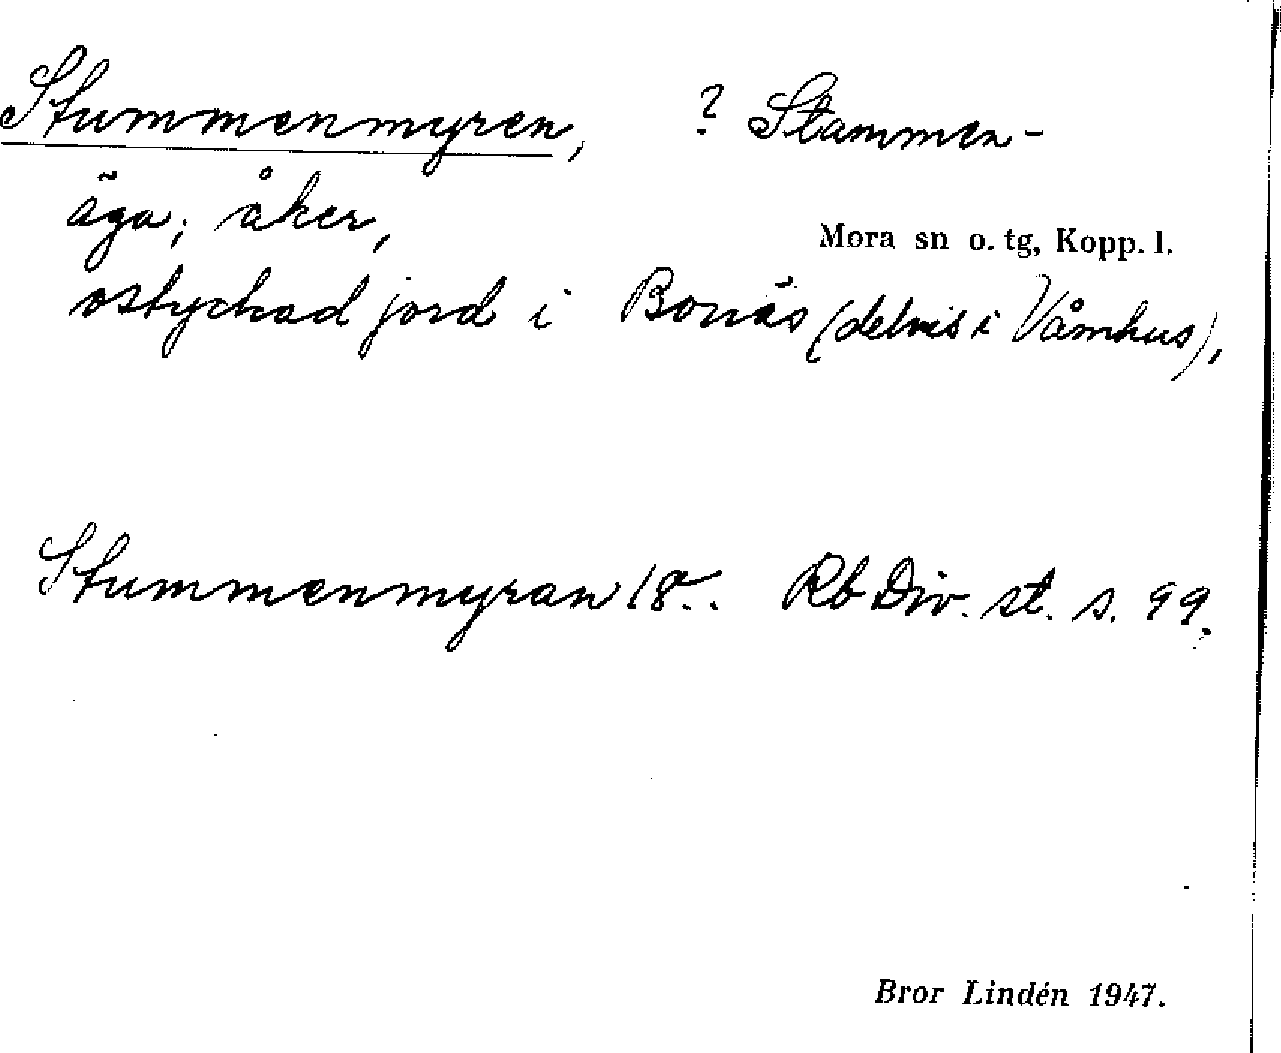 Stummenmyren, ? Stammen-
äga; åker,
Mora sn o. tg, Kopp. l.
ostyckad jord i Bonäs (delvis i Våmhus),
Stummenmyran 18... Rb Div. st. s. 99.
Bror Lindén 1947.